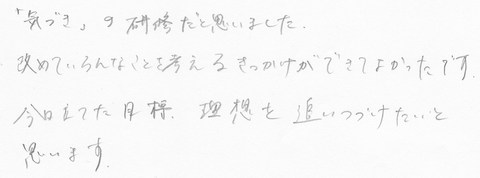 「気づき」の研修だと思いました.
改めていろんなことを考えるきっかけができてよかったです.
今日立てた目標、理想を追いつづけたいと
思います.